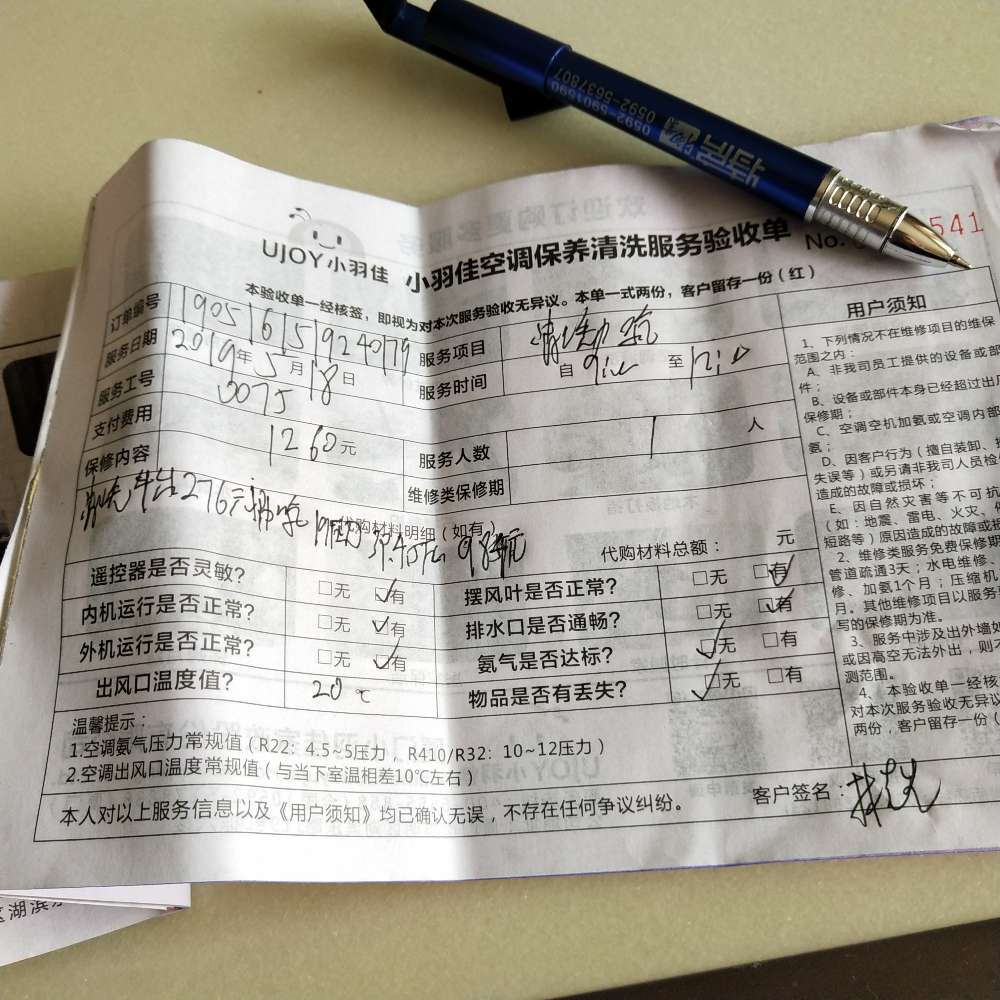 0592-5901590 0592-5637807
欢迎订购更多服务
UJOY小羽佳 小羽佳空调保养清洗服务验收单 No.
541
本验收单一经核签，即视为对本次服务验收无异议。本单一式两份，客户留存一份（红）
订单编号 190516159240179 服务项目
服务日期 2019年5月18日 服务时间 自 至
服务工号 0075
支付费用 1260元 服务人数 1 人
保修内容 维修类保修期
276元
代购材料明细（如有） 代购材料总额： 元
遥控器是否灵敏？ □无 □有 摆风叶是否正常？ □无 □有
内机运行是否正常？ □无 □有 排水口是否通畅？ □无 □有
外机运行是否正常？ □无 □有 氨气是否达标？ □无 □有
出风口温度值？ 20℃ 物品是否有丢失？ □无 □有
温馨提示：
1.空调氨气压力常规值（R22：4.5~5压力，R410/R32：10~12压力）
2.空调出风口温度常规值（与当下室温相差10℃左右）
本人对以上服务信息以及《用户须知》均已确认无误，不存在任何争议纠纷。
客户签名：
用户须知
1、下列情况不在维修项目的维保
范围之内：
A、非我司员工提供的设备或部
件；
B、设备或部件本身已经超过出厂
保修期；
C、空调空机加氨或空调内部
氨；
D、因客户行为（擅自装卸、
失误等）或另请非我司人员检
造成的故障或损坏；
E、因自然灾害等不可抗
（如：地震、雷电、火灾、
短路等）原因造成的故障或损
2、维修类服务免费保修期
管道疏通3天；水电维修、
修、加氨1个月；压缩机
月。其他维修项目以服务
写的保修期为准。
3、服务中涉及出外墙如
或因高空无法外出，则不
测范围。
4、本验收单一经核
对本次服务验收无异议
两份，客户留存一份（
湖滨